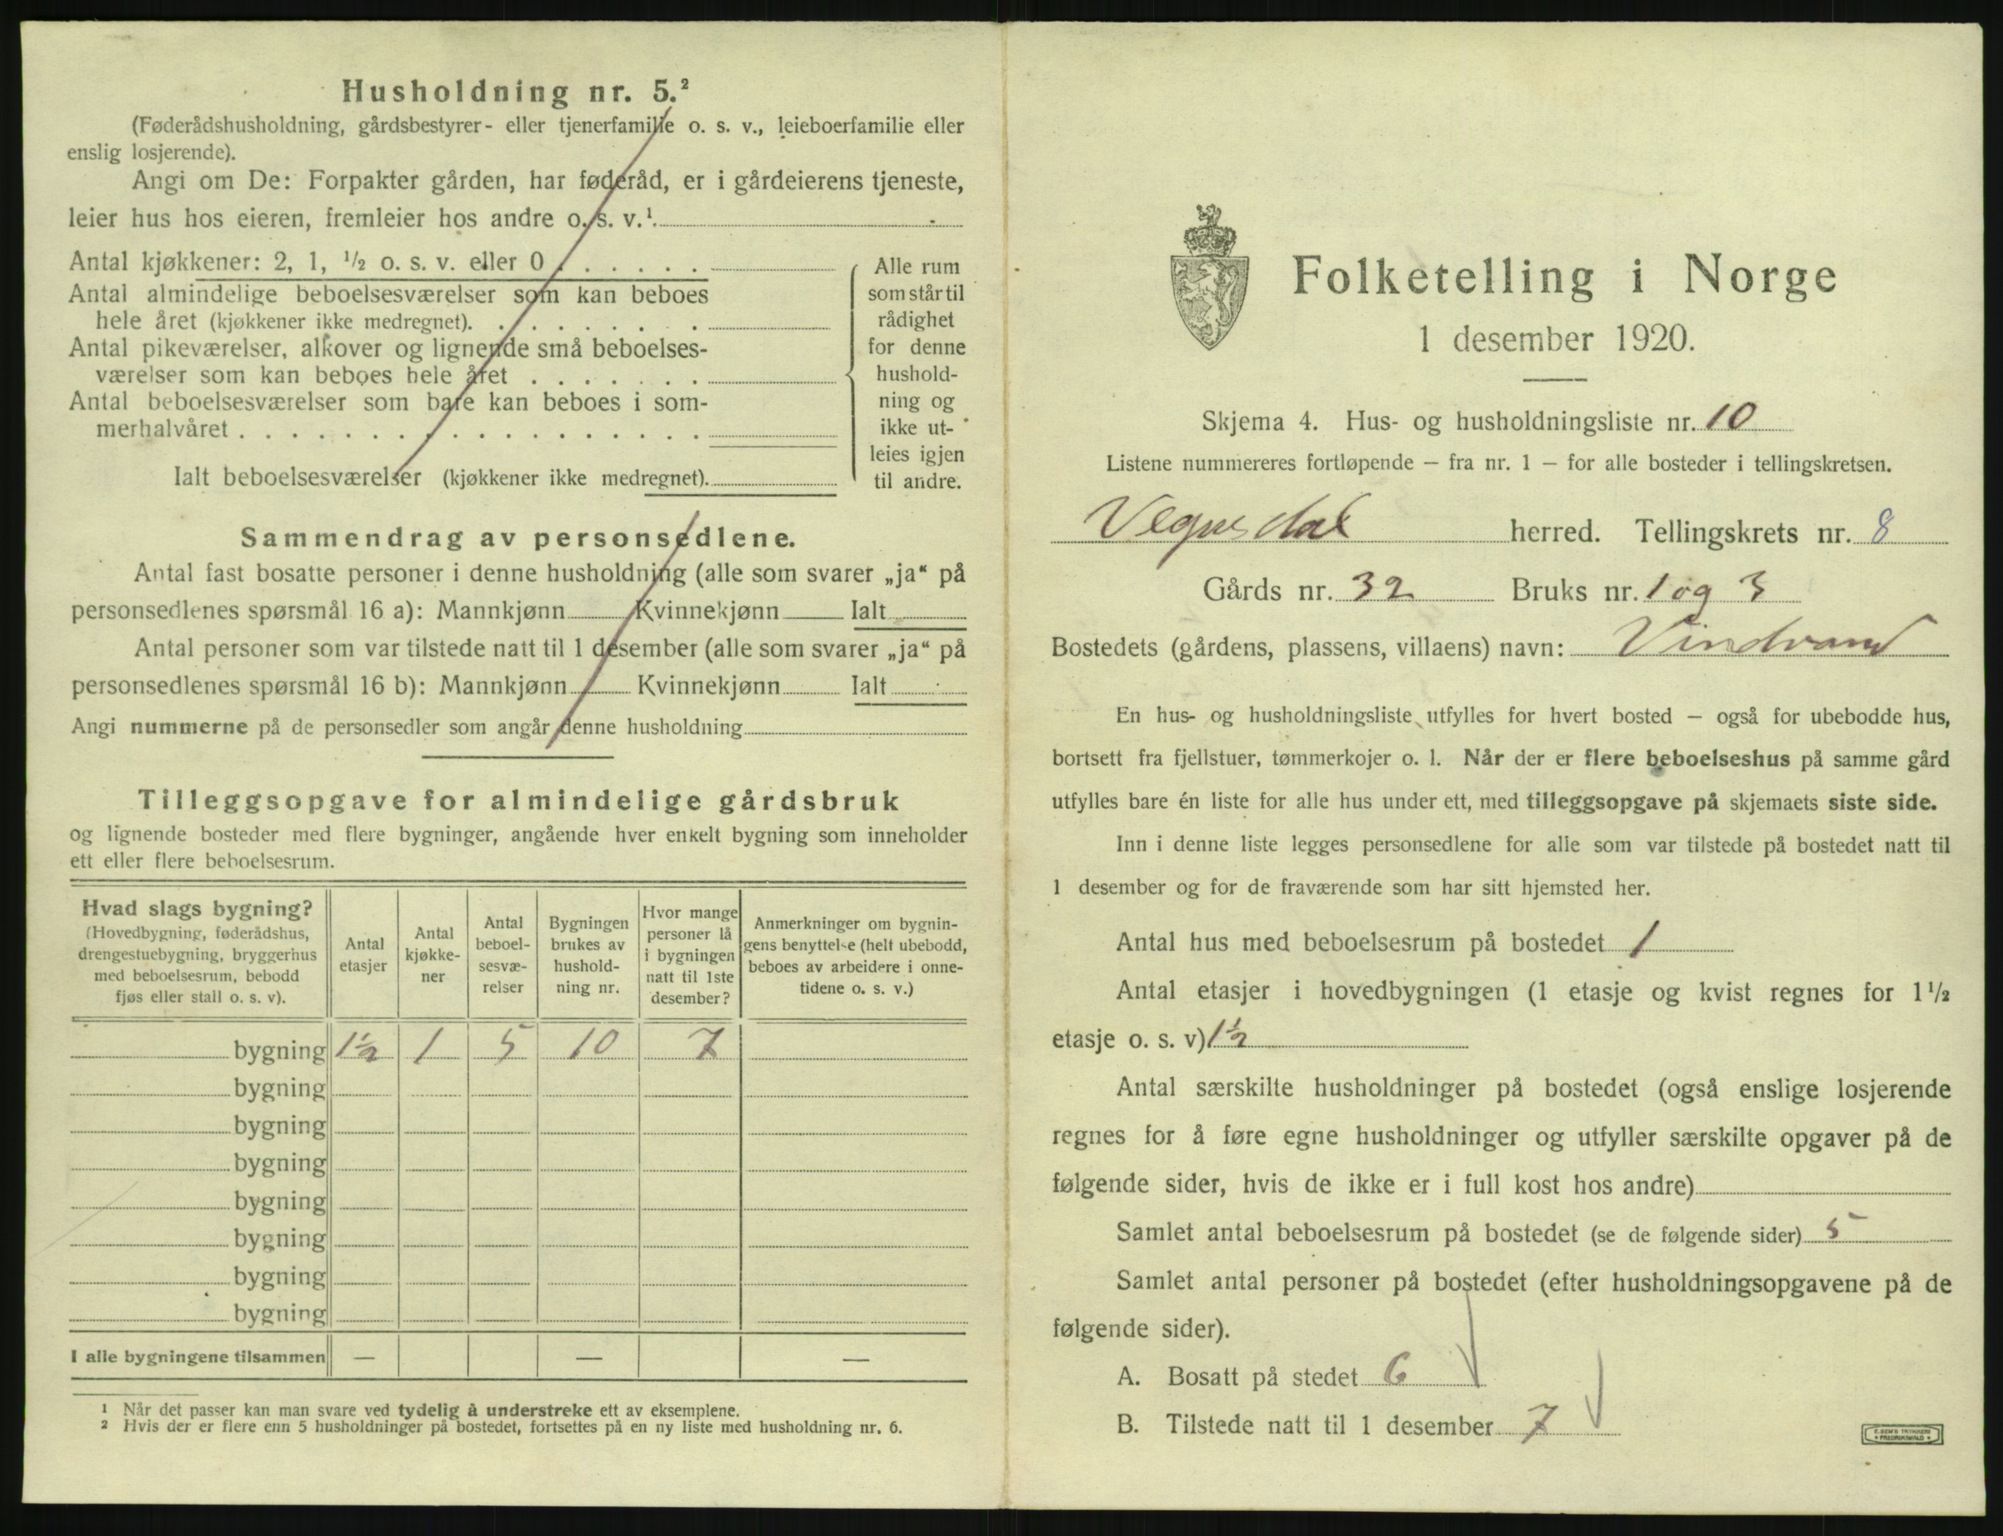 Husholdning nr. 5.²
(Føderådshusholdning, gårdsbestyrer- eller tjenerfamilie o. s. v., leieboerfamilie eller
enslig losjerende).
Angi om De: Forpakter gården, har føderåd, er i gårdeierens tjeneste,
leier hus hos eieren, fremleier hos andre o. s. v.¹
Antal kjøkkener: 2, 1, ½ o. s. v. eller 0
Antal almindelige beboelsesværelser som kan beboes
hele året (kjøkkener ikke medregnet).
Antal pikeværelser, alkover og lignende små beboelses-
værelser som kan beboes hele året
Antal beboelsesværelser som bare kan beboes i som-
merhalvåret
Ialt beboelsesværelser (kjøkkener ikke medregnet).
Alle rum
som står til
rådighet
for denne
hushold-
ning og
ikke ut-
leies igjen
til andre.
Sammendrag av personsedlene.
Antal fast bosatte personer i denne husholdning (alle som svarer „ja“ på
personsedlenes spørsmål 16 a): Mannkjønn Kvinnekjønn Ialt
Antal personer som var tilstede natt til 1 desember (alle som svarer „ja“ på
personsedlenes spørsmål 16 b): Mannkjønn Kvinnekjønn Ialt
Angi nummerne på de personsedler som angår denne husholdning
Tilleggsopgave for almindelige gårdsbruk
og lignende bosteder med flere bygninger, angående hver enkelt bygning som inneholder
ett eller flere beboelsesrum.
Hvad slags bygning?
(Hovedbygning, føderådshus,
drengestuebygning, bryggerhus
med beboelsesrum, bebodd
fjøs eller stall o. s. v).
Antal
etasjer
Antal
kjøkke-
ner
Antal
beboel-
sesvæ-
relser
Bygningen
brukes av
hushold-
ning nr.
Hvor mange
personer lå
i bygningen
natt til 1ste
desember?
Anmerkninger om bygnin-
gens benyttelse (helt ubebodd,
beboes av arbeidere i onne-
tidene o. s. v.)
bygning 1½ 1 5 10 7
bygning
bygning
bygning
bygning
bygning
bygning
bygning
I alle bygningene tilsammen — — —
¹ Når det passer kan man svare ved tydelig å understreke ett av eksemplene.
² Hvis der er flere enn 5 husholdninger på bostedet, fortsettes på en ny liste med husholdning nr. 6.
Folketelling i Norge
1 desember 1920.
Skjema 4. Hus- og husholdningsliste nr. 10
Listene nummereres fortløpende – fra nr. 1 – for alle bosteder i tellingskretsen.
Vegusdal herred. Tellingskrets nr. 8
Gårds nr. 32 Bruks nr. 1 og 3
Bostedets (gårdens, plassens, villaens) navn: Vindvand
En hus- og husholdningsliste utfylles for hvert bosted – også for ubebodde hus,
bortsett fra fjellstuer, tømmerkojer o. l. Når der er flere beboelseshus på samme gård
utfylles bare én liste for alle hus under ett, med tilleggsopgave på skjemaets siste side.
Inn i denne liste legges personsedlene for alle som var tilstede på bostedet natt til
1 desember og for de fraværende som har sitt hjemsted her.
Antal hus med beboelsesrum på bostedet 1
Antal etasjer i hovedbygningen (1 etasje og kvist regnes for 1½
etasje o. s. v) 1½
Antal særskilte husholdninger på bostedet (også enslige losjerende
regnes for å føre egne husholdninger og utfyller særskilte opgaver på de
følgende sider, hvis de ikke er i full kost hos andre)
Samlet antal beboelsesrum på bostedet (se de følgende sider) 5
Samlet antal personer på bostedet (efter husholdningsopgavene på de
følgende sider).
A. Bosatt på stedet 6
B. Tilstede natt til 1 desember 7